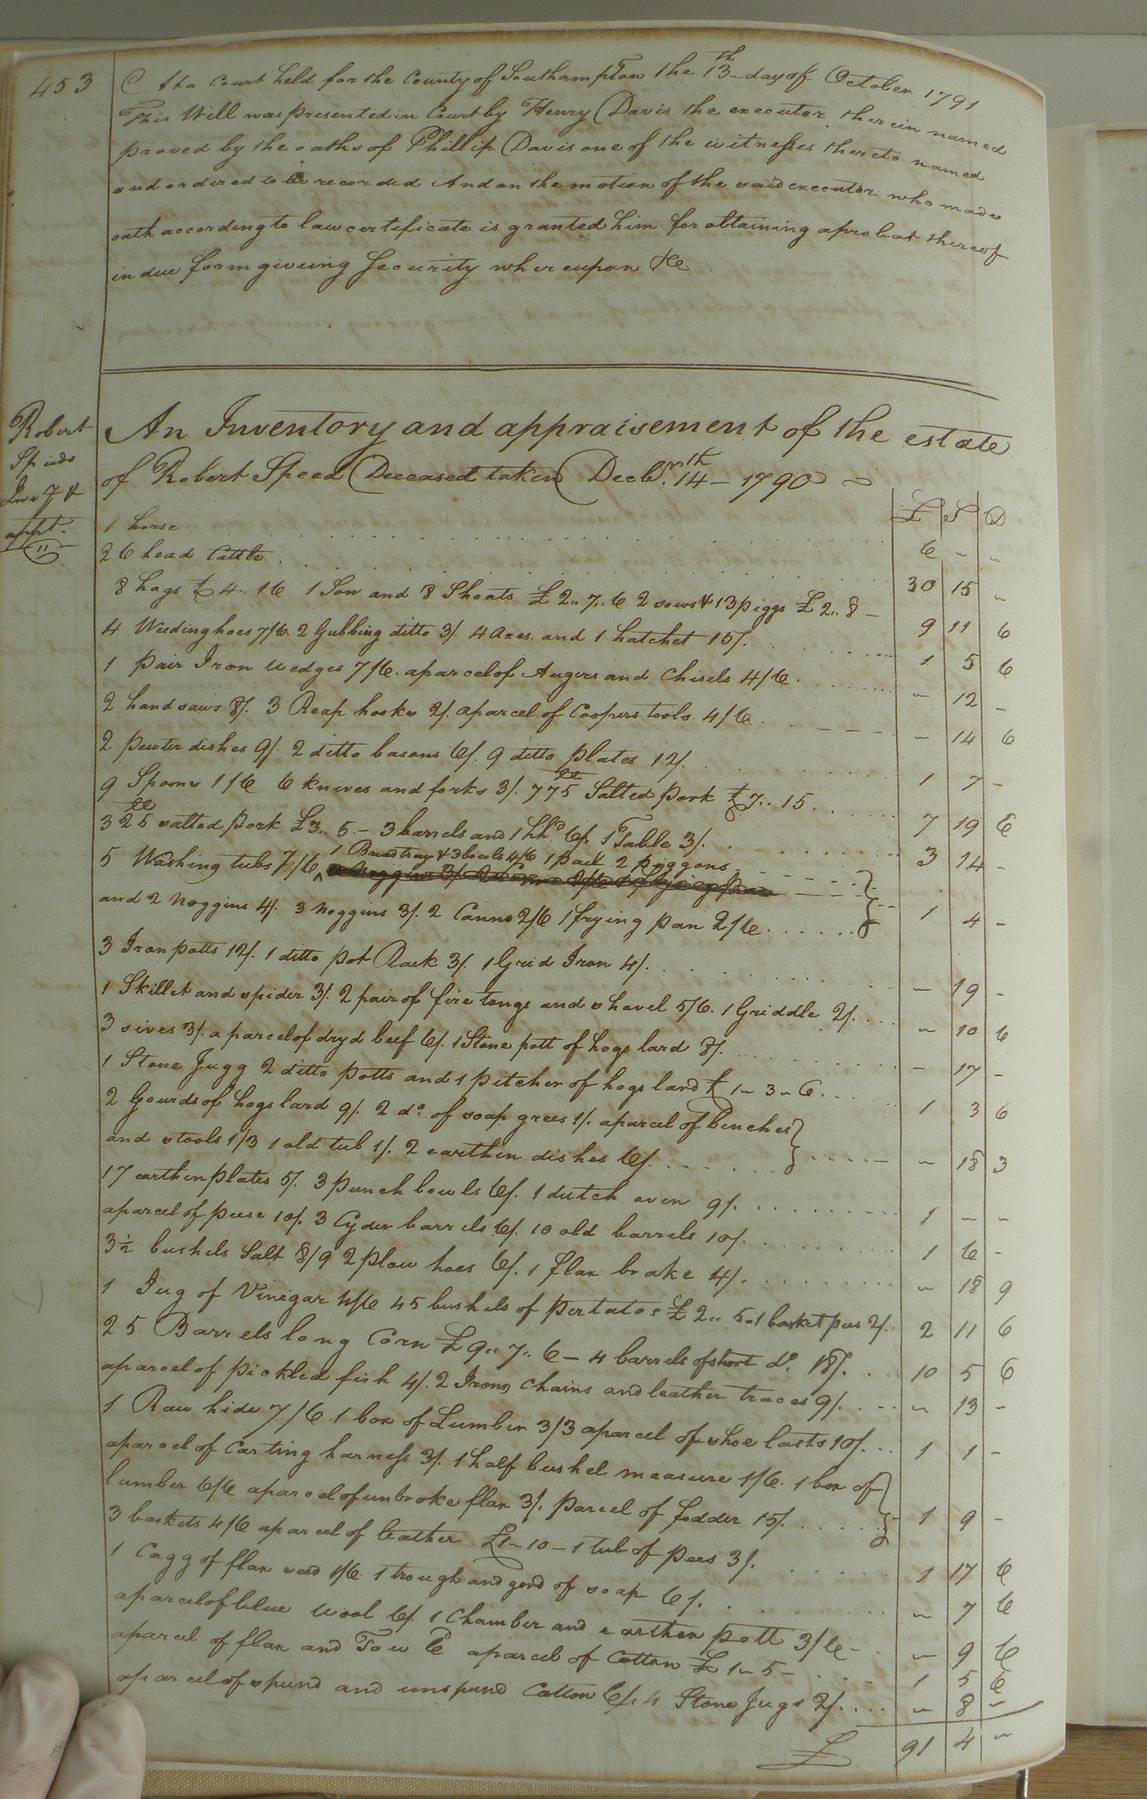 453
At a Court held for the County of Southampton the 13th day of October 1791
This Will was presented in Court by Henry Davis the executor therein named
proved by the oaths of Phillip Davis one of the witnesses thereto named
and ordered to be recorded And on the motion of the said executor who made
oath according to law certificate is granted him for obtaining a probat thereof
in due form giveing Security whereupon &c
Robert
Speeds
Inv.y &
appt.
An Inventory and appraisement of the estate
of Robert Speed Deceased taken Decbr. 14th - 1790
£ S D
1 horse 6 - -
26 head Cattle 30 15 -
8 hogs £4..16 1 Sow and 8 Shoats £2..7..6 2 sows & 13 piggs £2..8 - 9 11 6
4 Weeding hoes 7/6. 2 Gubbing ditto 3/. 4 axes and 1 hatchet 15/. 1 5 6
1 pair Iron wedges 7/6. a parcel of Augers and Chisels 4/6 - 12 -
2 hand saws 8/. 3 Reap hooks 2/. a parcel of Coopers tools 4/6 - 14 6
2 pewter dishes 9/. 2 ditto basons 6/. 9 ditto plates 12/. 1 7 -
9 Spoons 1/6 6 knives and forks 3/. 775 Salted pork £7..15. 7 19 6
325 salted pork £3..5 - 3 barrels and 1 hhd 6/. 1 Table 3/. 3 14 -
5 Washing tubs 7/6 1 Bread tray & 3 bowls 4/6 1 pail 2 piggons
and 2 Noggins 4/. 3 noggins 3/. 2 Canns 2/6 1 frying pan 2/6 1 4 -
3 Iron potts 12/. 1 ditto pot Rack 3/. 1 Grid Iron 4/. - 19 -
1 Skillet and spider 3/. 2 pair of fire tongs and shovel 5/6. 1 Griddle 2/. - 10 6
3 sives 3/. a parcel of dryd beef 6/. 1 Stone pott of hogs lard 8/. - 17 -
1 Stone Jugg 2 ditto potts and 1 pitcher of hogs lard £1 - 3 - 6. 1 3 6
2 Gourds of hogs lard 9/. 2 do. of soap grees 1/. a parcel of benches
and stools 1/3 1 old tub 1/. 2 earthen dishes 6/. - 18 3
17 earthen plates 5/. 3 punch bowls 6/. 1 dutch oven 9/. 1 - -
a parcel of peese 10/. 3 Cyder barrels 6/. 10 old barrels 10/. 1 6 -
3½ bushels Salt 8/9 2 plow hoes 6/. 1 flax brake 4/. - 18 9
1 Jug of Vinegar 4/6 45 bushels of pertatoes £2..5. 1 basket peas 2/. 2 11 6
25 Barrels long Corn £9..7..6 - 4 barrels of short do. 18/. 10 5 6
a parcel of pickled fish 4/. 2 Irons Chains and leather traces 9/. - 13 -
1 Raw hide 7/6 1 box of Lumber 3/3 a parcel of shoe lasts 10/. 1 1 -
a parcel of Carting harness 3/. 1 half bushel measure 1/6. 1 box of
lumber 6/6 a parcel of unbroke flax 3/. parcel of fodder 15/. 1 9 -
3 baskets 4/6 a parcel of leather £1 - 10 - 1 tub of pees 3/. 1 17 6
1 Cagg of flax seed 1/6 1 trough and gord of soap 6/. - 7 6
a parcel of blue wool 6/. 1 Chamber and earthen pott 3/6 - - 9 6
a parcel of flax and Tow 6d a parcel of Cotton £1 - 5 - 1 5 6
a parcel of spund and unspund Cotton 6/. 4 Stone Jugs 2/. - 8 -
£ 91 4 -